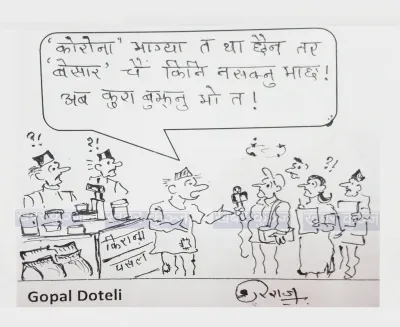 'कोरोना' भाग्या त था छैन तर
'बेसार' चैं किनि नसक्नु भाछ!
अब कुरा बुझ्नु मो त!
?!
?!
?!
किराना
पसल
Gopal Doteli